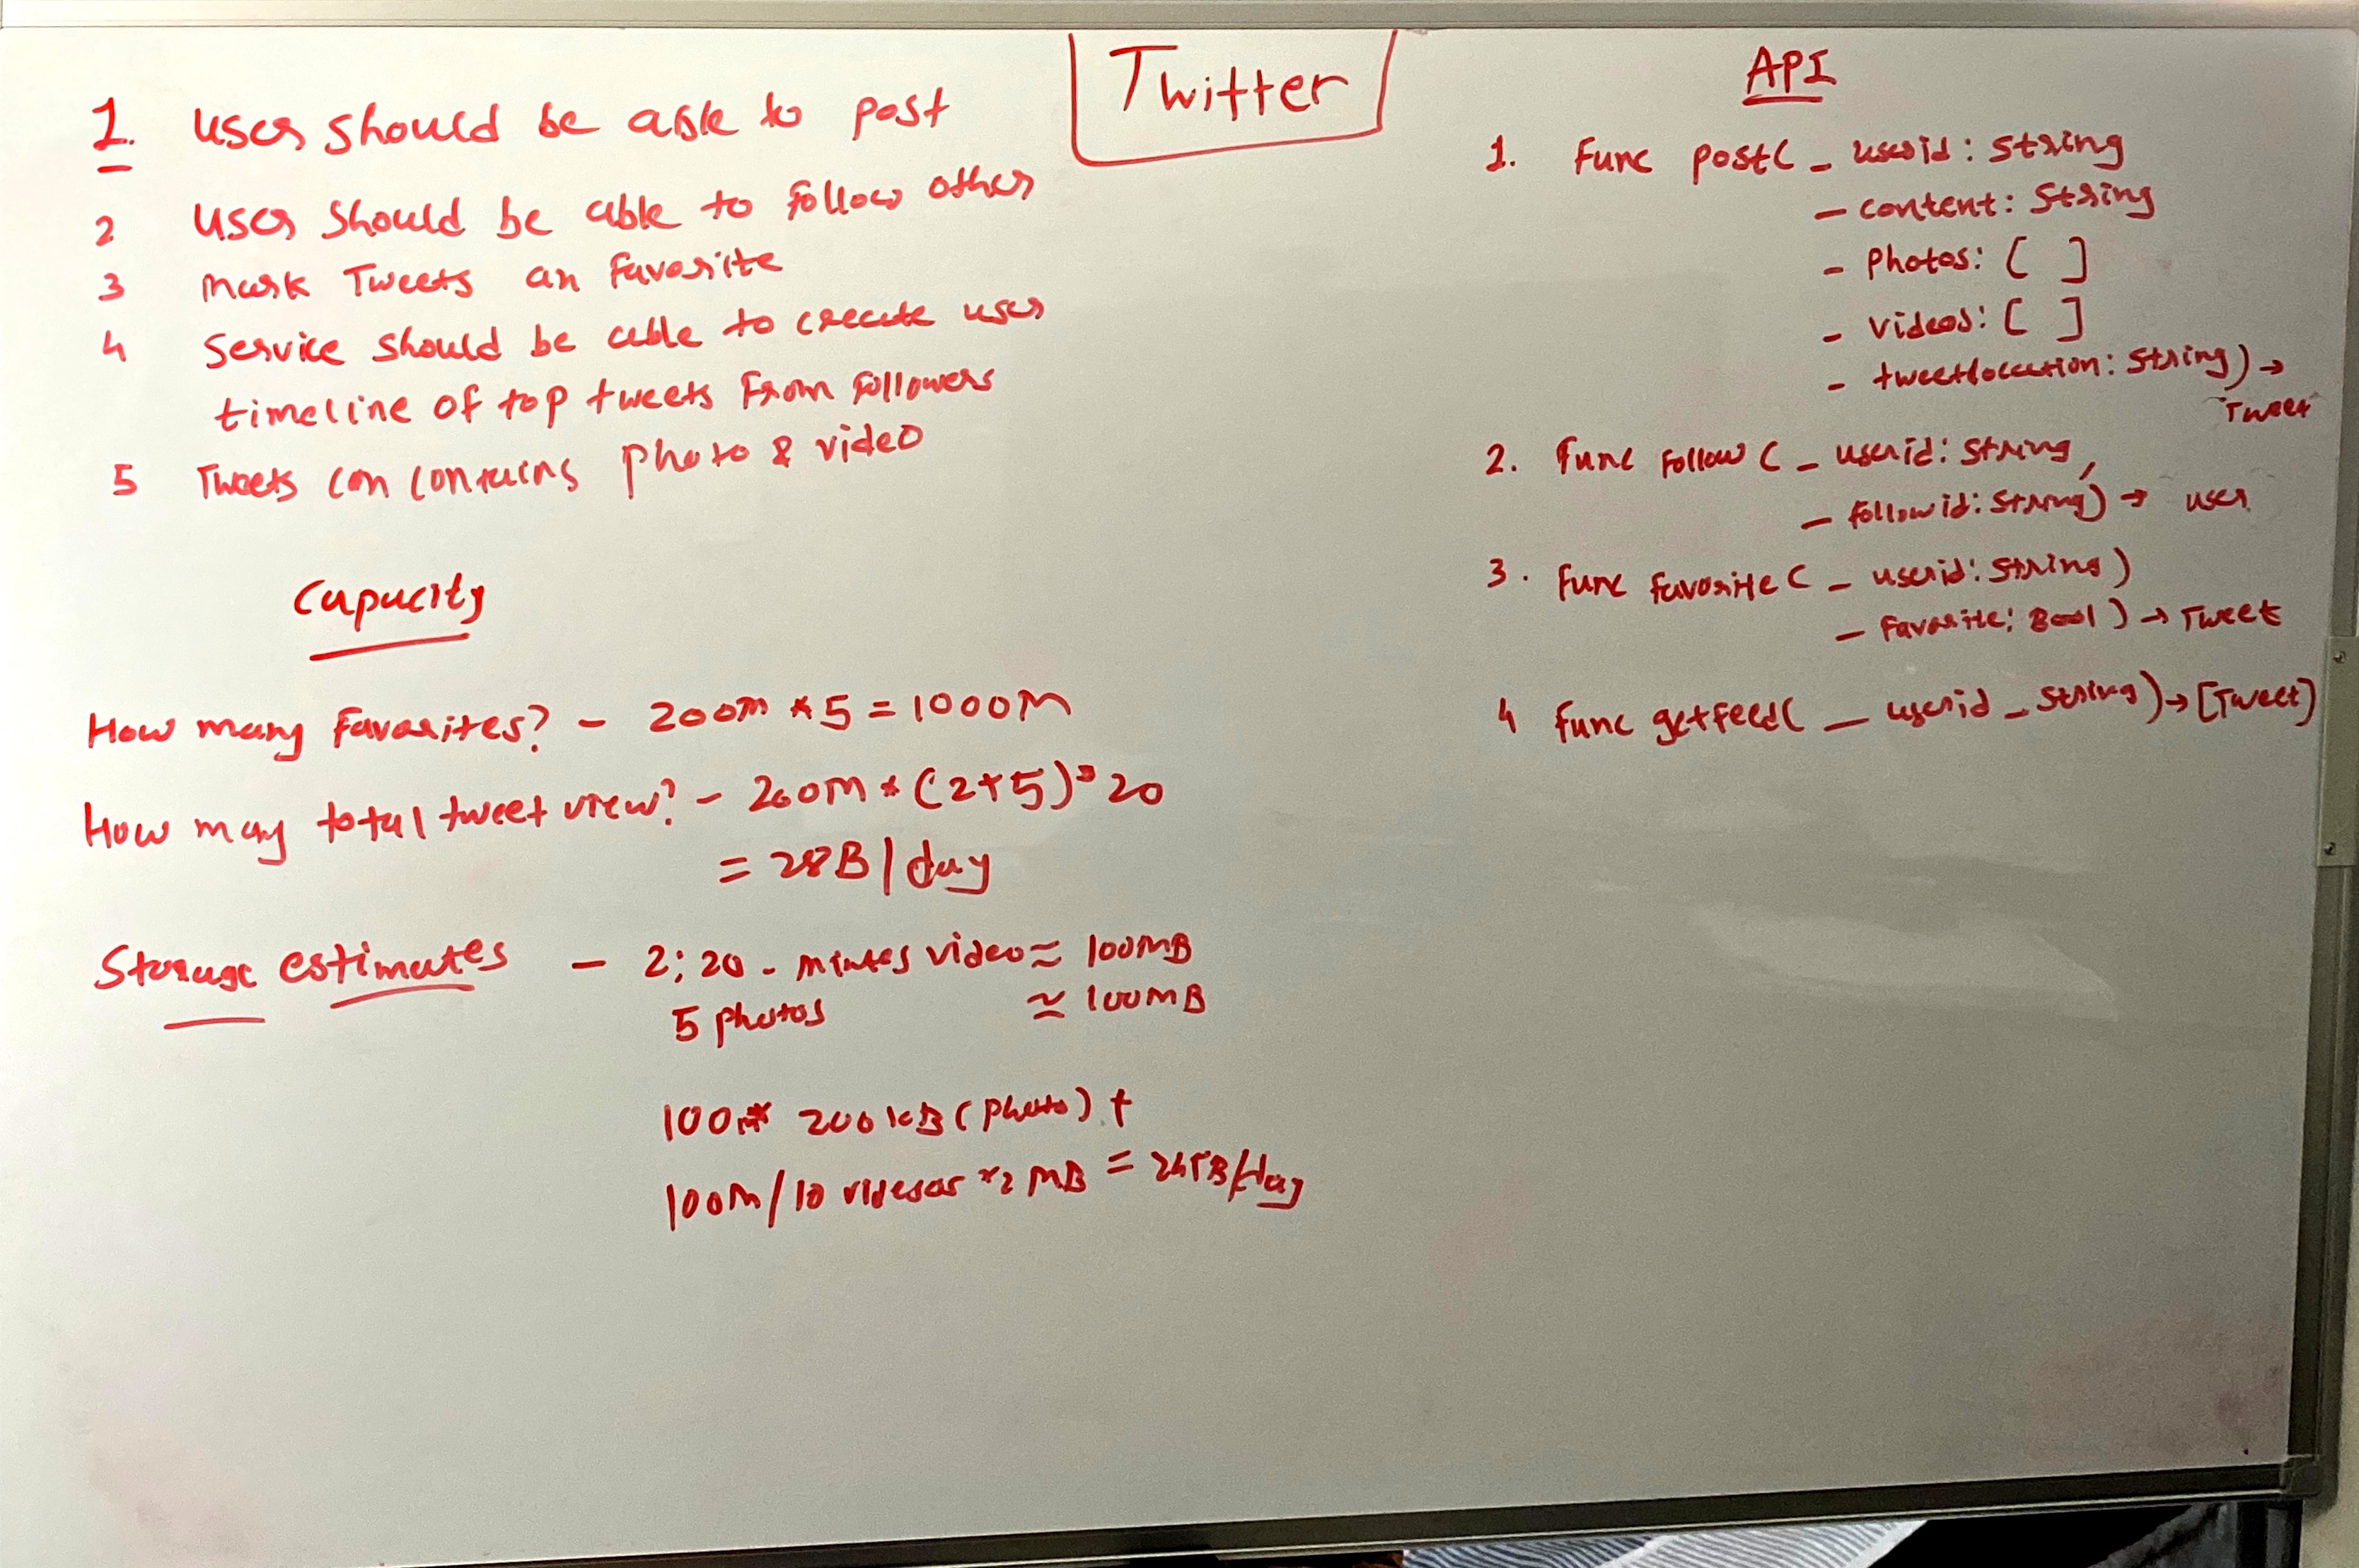 Twitter
1. User should be able to post
2 User should be able to follow other
3 Mark Tweets an favorite
4 Service should be able to create user
timeline of top tweets from followers
5 Tweets can contains photo & video
Capacity
How many favorites? - 200M * 5 = 1000M
How may total tweet view? - 200M * (2+5) * 20
= 28B / day
Storage estimates - 2:20 - mintes video ≈ 100MB
5 photos ≈ 100MB
100M* 200KB (photo) +
100M/10 * 2 MB = 24TB/day
API
1. Func post( _ userid: string
- content: String
- Photos: [ ]
- Videos: [ ]
- tweetlocation: String) →
Tweet
2. func follow ( _ userid: string,
- followid: String) → user
3. func favorite ( _ userid: string)
- favorite: Bool ) → Tweet
4 func getfeed( _ userid _ String) → [Tweet]